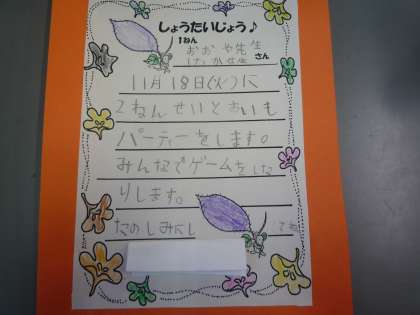 しょうたいじょう♪
1ねん
おおや先生
さん
11月18日(火)に
2ねんせいとおいも
パーティーをします。
みんなでゲームをした
りします。
たのしみにし
てね